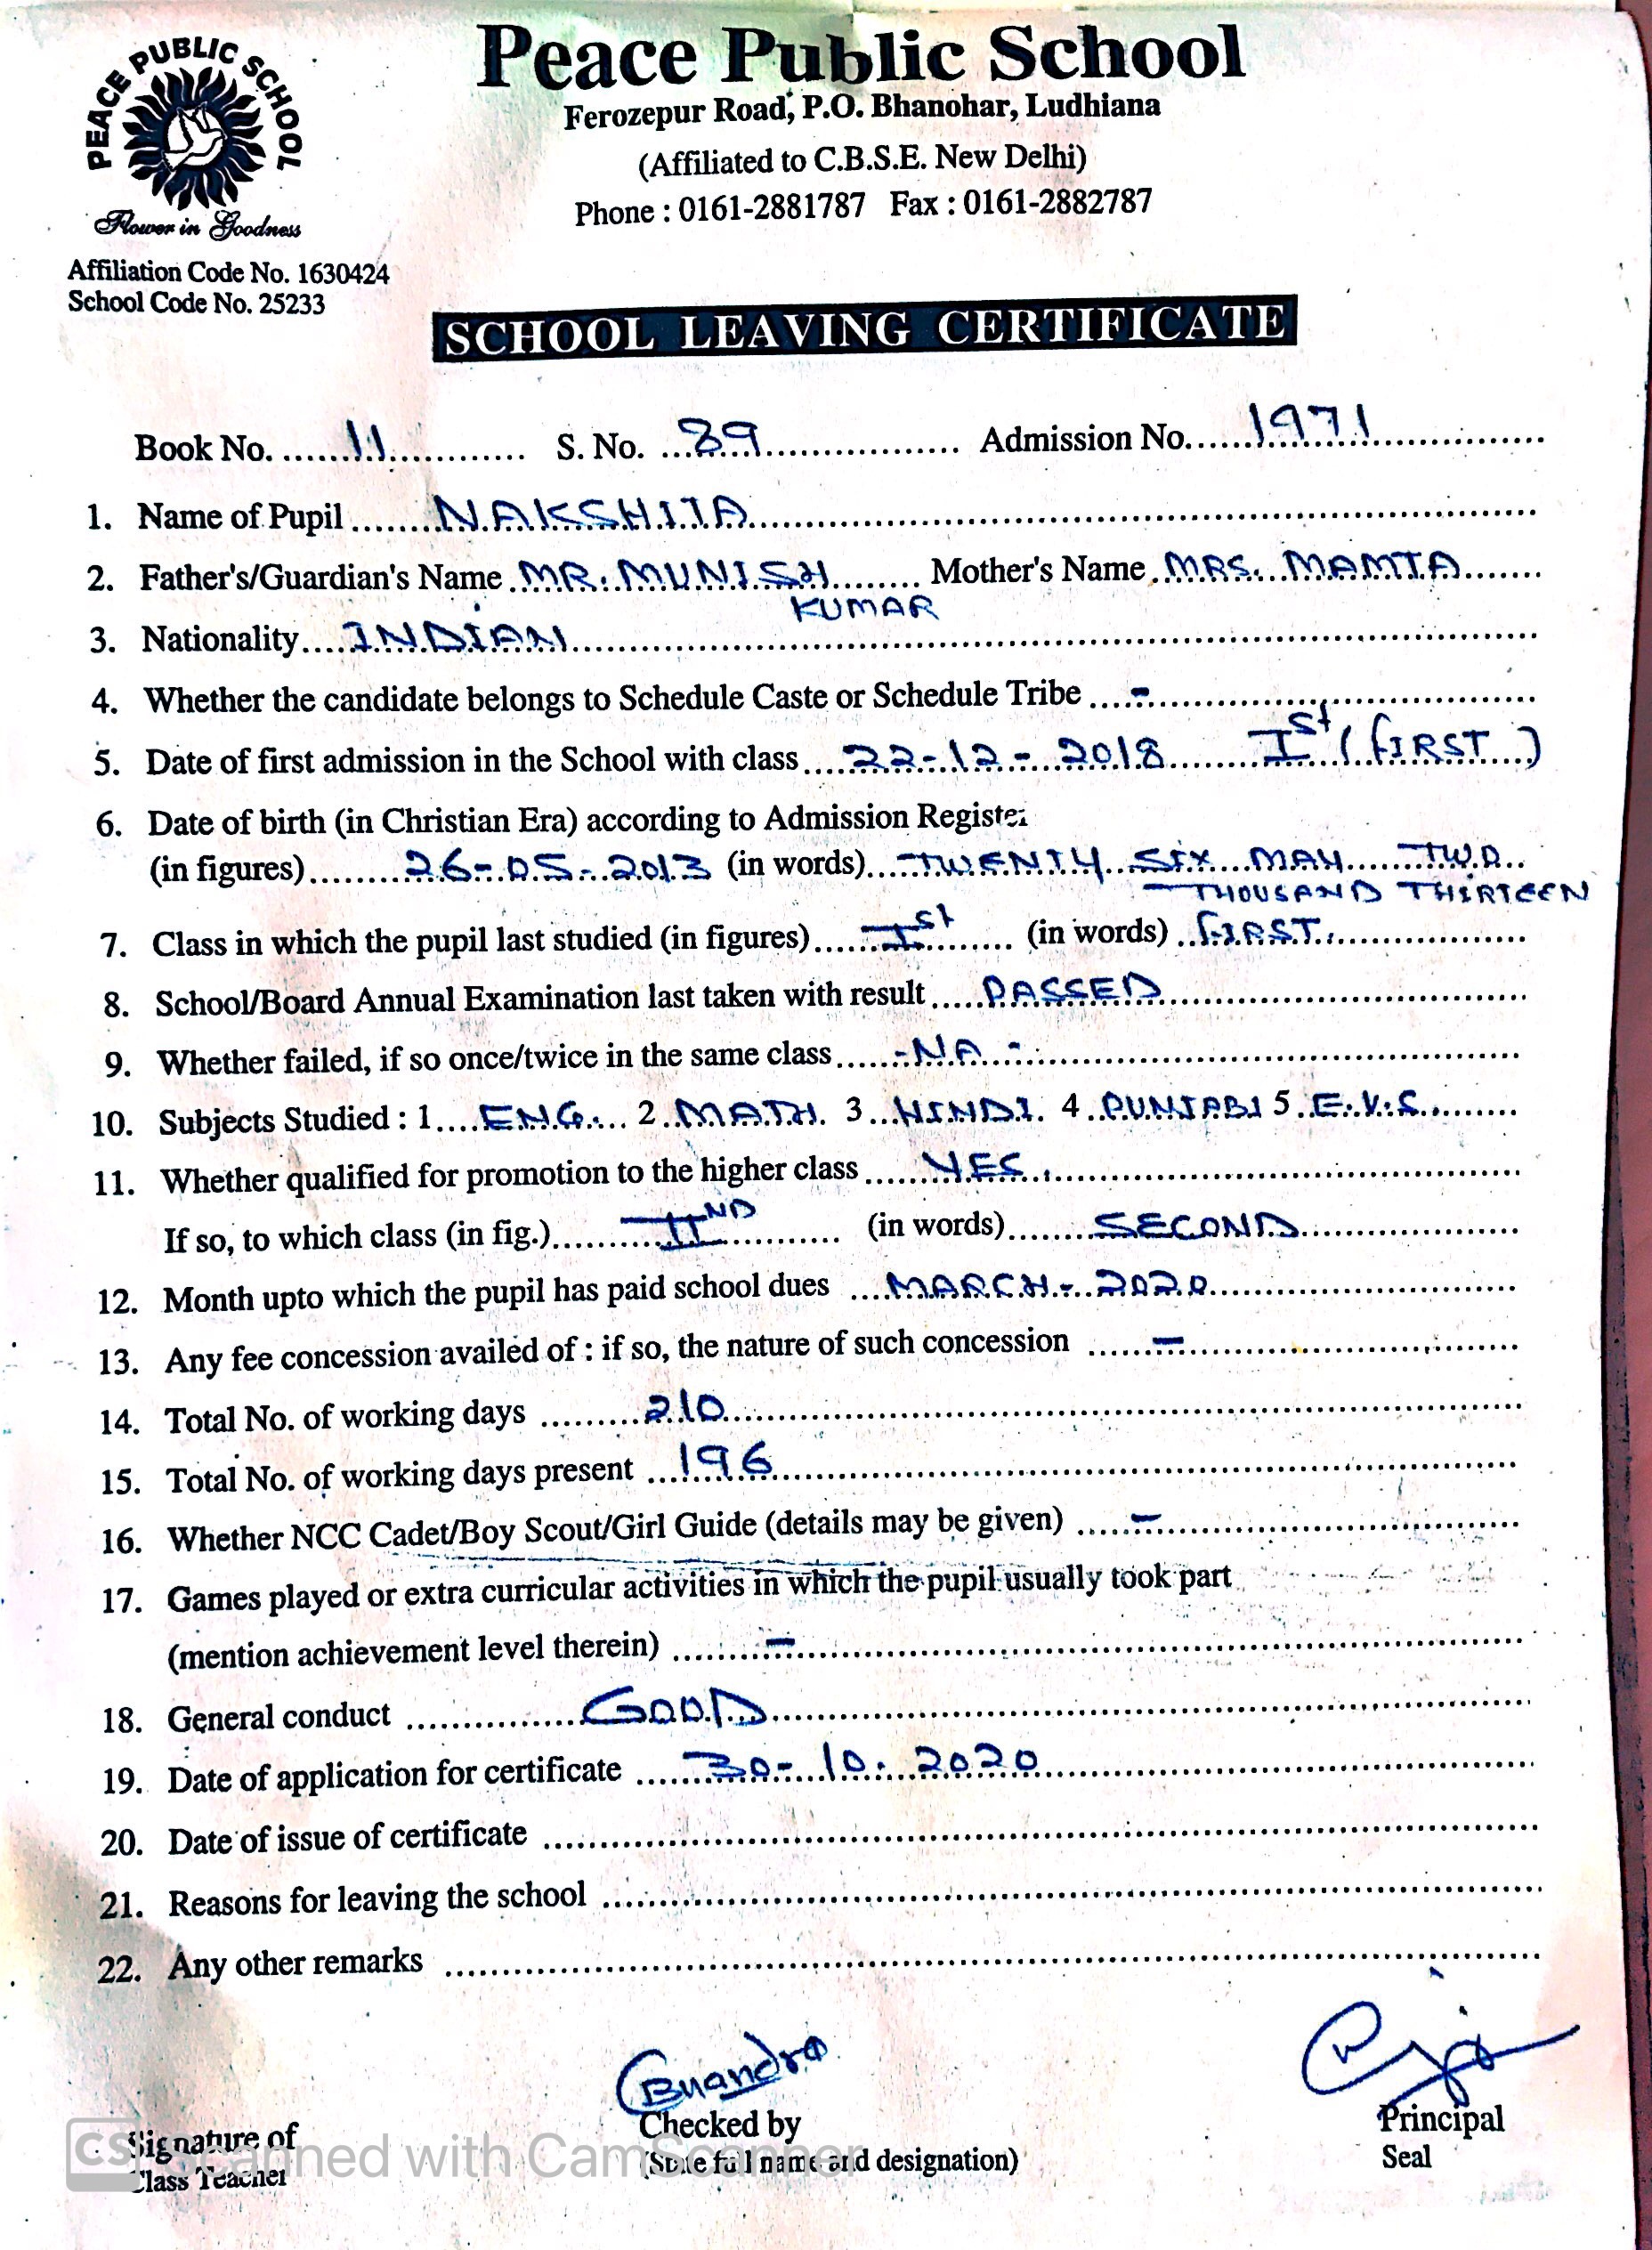 PEACE PUBLIC SCHOOL
Flower in Goodness
Affiliation Code No. 1630424
School Code No. 25233
Peace Public School
Ferozepur Road, P.O. Bhanohar, Ludhiana
(Affiliated to C.B.S.E. New Delhi)
Phone : 0161-2881787 Fax : 0161-2882787
SCHOOL LEAVING CERTIFICATE
Book No. 11 S. No. 39 Admission No. 1971
1. Name of Pupil NAKSHITA
2. Father's/Guardian's Name MR. MUNISH Mother's Name MRS. MAMTA
KUMAR
3. Nationality INDIAN
4. Whether the candidate belongs to Schedule Caste or Schedule Tribe -
5. Date of first admission in the School with class 22-12-2018 Ist (FIRST)
6. Date of birth (in Christian Era) according to Admission Register
(in figures) 26-05-2013 (in words) TWENTY SIX MAY TWO
THOUSAND THIRTEEN
7. Class in which the pupil last studied (in figures) Ist (in words) FIRST.
8. School/Board Annual Examination last taken with result PASSED
9. Whether failed, if so once/twice in the same class -NA-
10. Subjects Studied : 1 ENG. 2 MATH. 3 HINDI. 4 PUNJABI 5 E.V.S
11. Whether qualified for promotion to the higher class YES.
If so, to which class (in fig.) IIND (in words) SECOND
12. Month upto which the pupil has paid school dues MARCH-2020
13. Any fee concession availed of : if so, the nature of such concession -
14. Total No. of working days 210
15. Total No. of working days present 196
16. Whether NCC Cadet/Boy Scout/Girl Guide (details may be given) -
17. Games played or extra curricular activities in which the pupil usually took part
(mention achievement level therein) -
18. General conduct GOOD
19. Date of application for certificate 30-10-2020
20. Date of issue of certificate
21. Reasons for leaving the school
22. Any other remarks
Signature of
Class Teacher
Checked by
(State full name and designation)
Principal
Seal
CS Scanned with CamScanner